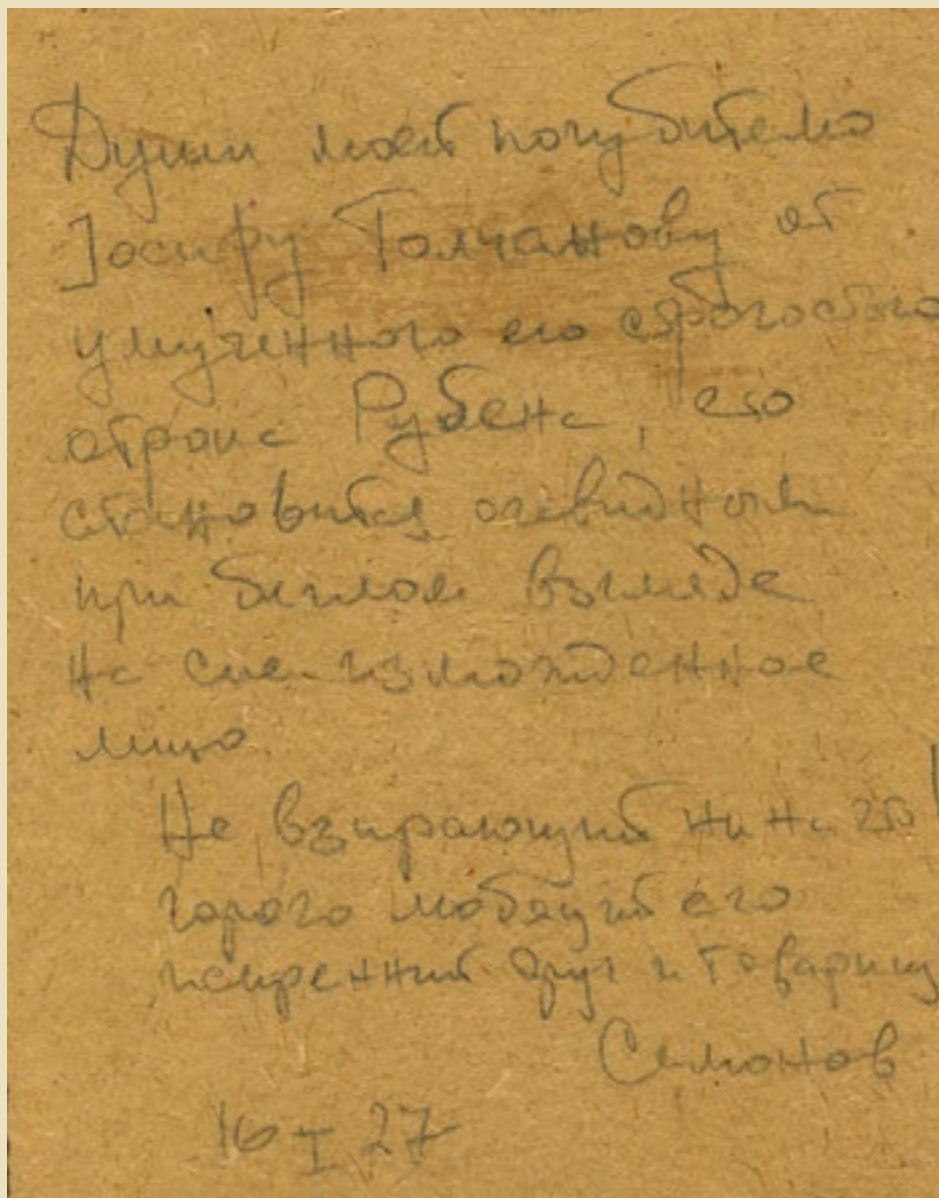 Души моей погубителю
Iосифу Толчанову от
умученного его строгостью
отрока Рубена, что
становится очевидным
при беглом взгляде
на сие изможденное
лицо
Не взирающий ни на что
горячо любящий его
искренний друг и товарищ
Симонов
16 I 27